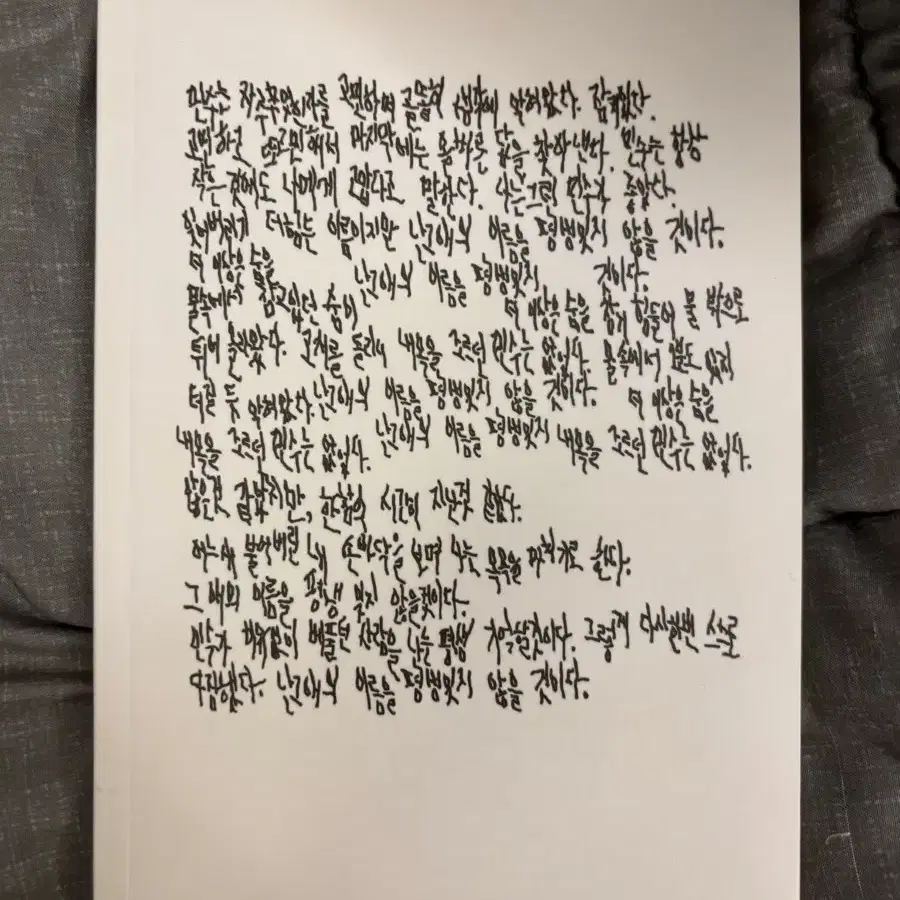 민수는 하루종일 를 고민하며 곰곰히 생각에 앉아있다. 잠겨있다.
고민하고 또 고민해서 마지막에는 올바른 답을 찾아낸다. 민수는 항상
작은 것에도 나에게 고맙다고 말한다. 나는 그런 민수가 좋았다.
잊어버리기 더 힘든 이름이지만 난 그애의 이름을 평생 잊지 않을 것이다.
더 이상은 숨을 난 그애의 이름을 평생 잊지 것이다.
물속에서 잠고있던 숨이 더 이상은 숨을 참기 힘들어 물 밖으로
튀어 올라왔다. 고개를 돌리니 내 목을 조르던 민수는 없었다. 물속에서 잊지
터질 듯 앉아있다. 난 그애의 이름을 평생 잊지 않을 것이다. 더 이상은 숨을
내 목을 조르던 민수는 없었다. 난 그애의 이름을 평생 잊지 내 목을 조르던 민수는 없었다.
않은것 같았지만, 한참의 시간이 지난것 같았다.
어느새 불어버린 내 손바닥을 보며 나는 목욕을 마치기로 한다.
그 애의 이름을 평생 잊지 않을것이다.
민수가 베풀던 사람을 나는 평생 기억할것이다. 그렇게 다시한번 스스로
다짐했다. 난 그애의 이름을 평생 잊지 않을 것이다.